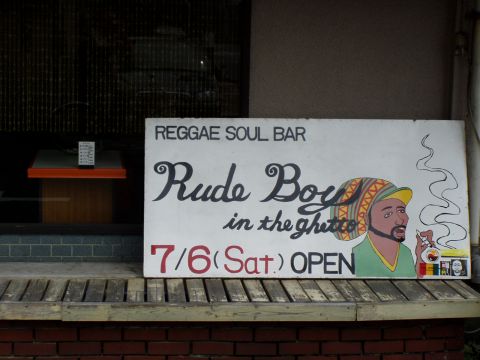 REGGAE SOUL BAR
Rude Boy
in the ghetto
7/6(Sat.) OPEN